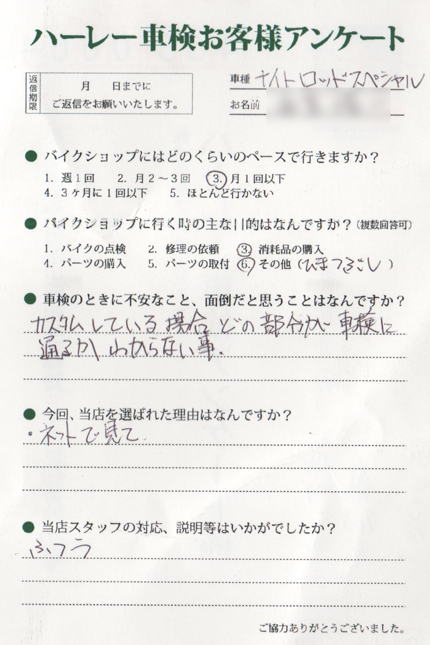 ハーレー車検お客様アンケート
返信期限
月　日までに
ご返信をお願いいたします。
車種 ナイトロッドスペシャル
お名前
● バイクショップにはどのくらいのペースで行きますか？
1. 週1回　2. 月2～3回　3. 月1回以下
4. 3ヶ月に1回以下　5. ほとんど行かない
● バイクショップに行く時の主な目的はなんですか？（複数回答可）
1. バイクの点検　2. 修理の依頼　3. 消耗品の購入
4. パーツの購入　5. パーツの取付　6. その他（ひまつぶし）
● 車検のときに不安なこと、面倒だと思うことはなんですか？
カスタムしている場合どの部分が車検に
通るかわからない事.
● 今回、当店を選ばれた理由はなんですか？
・ネットで見て
● 当店スタッフの対応、説明等はいかがでしたか？
ふつう
ご協力ありがとうございました。